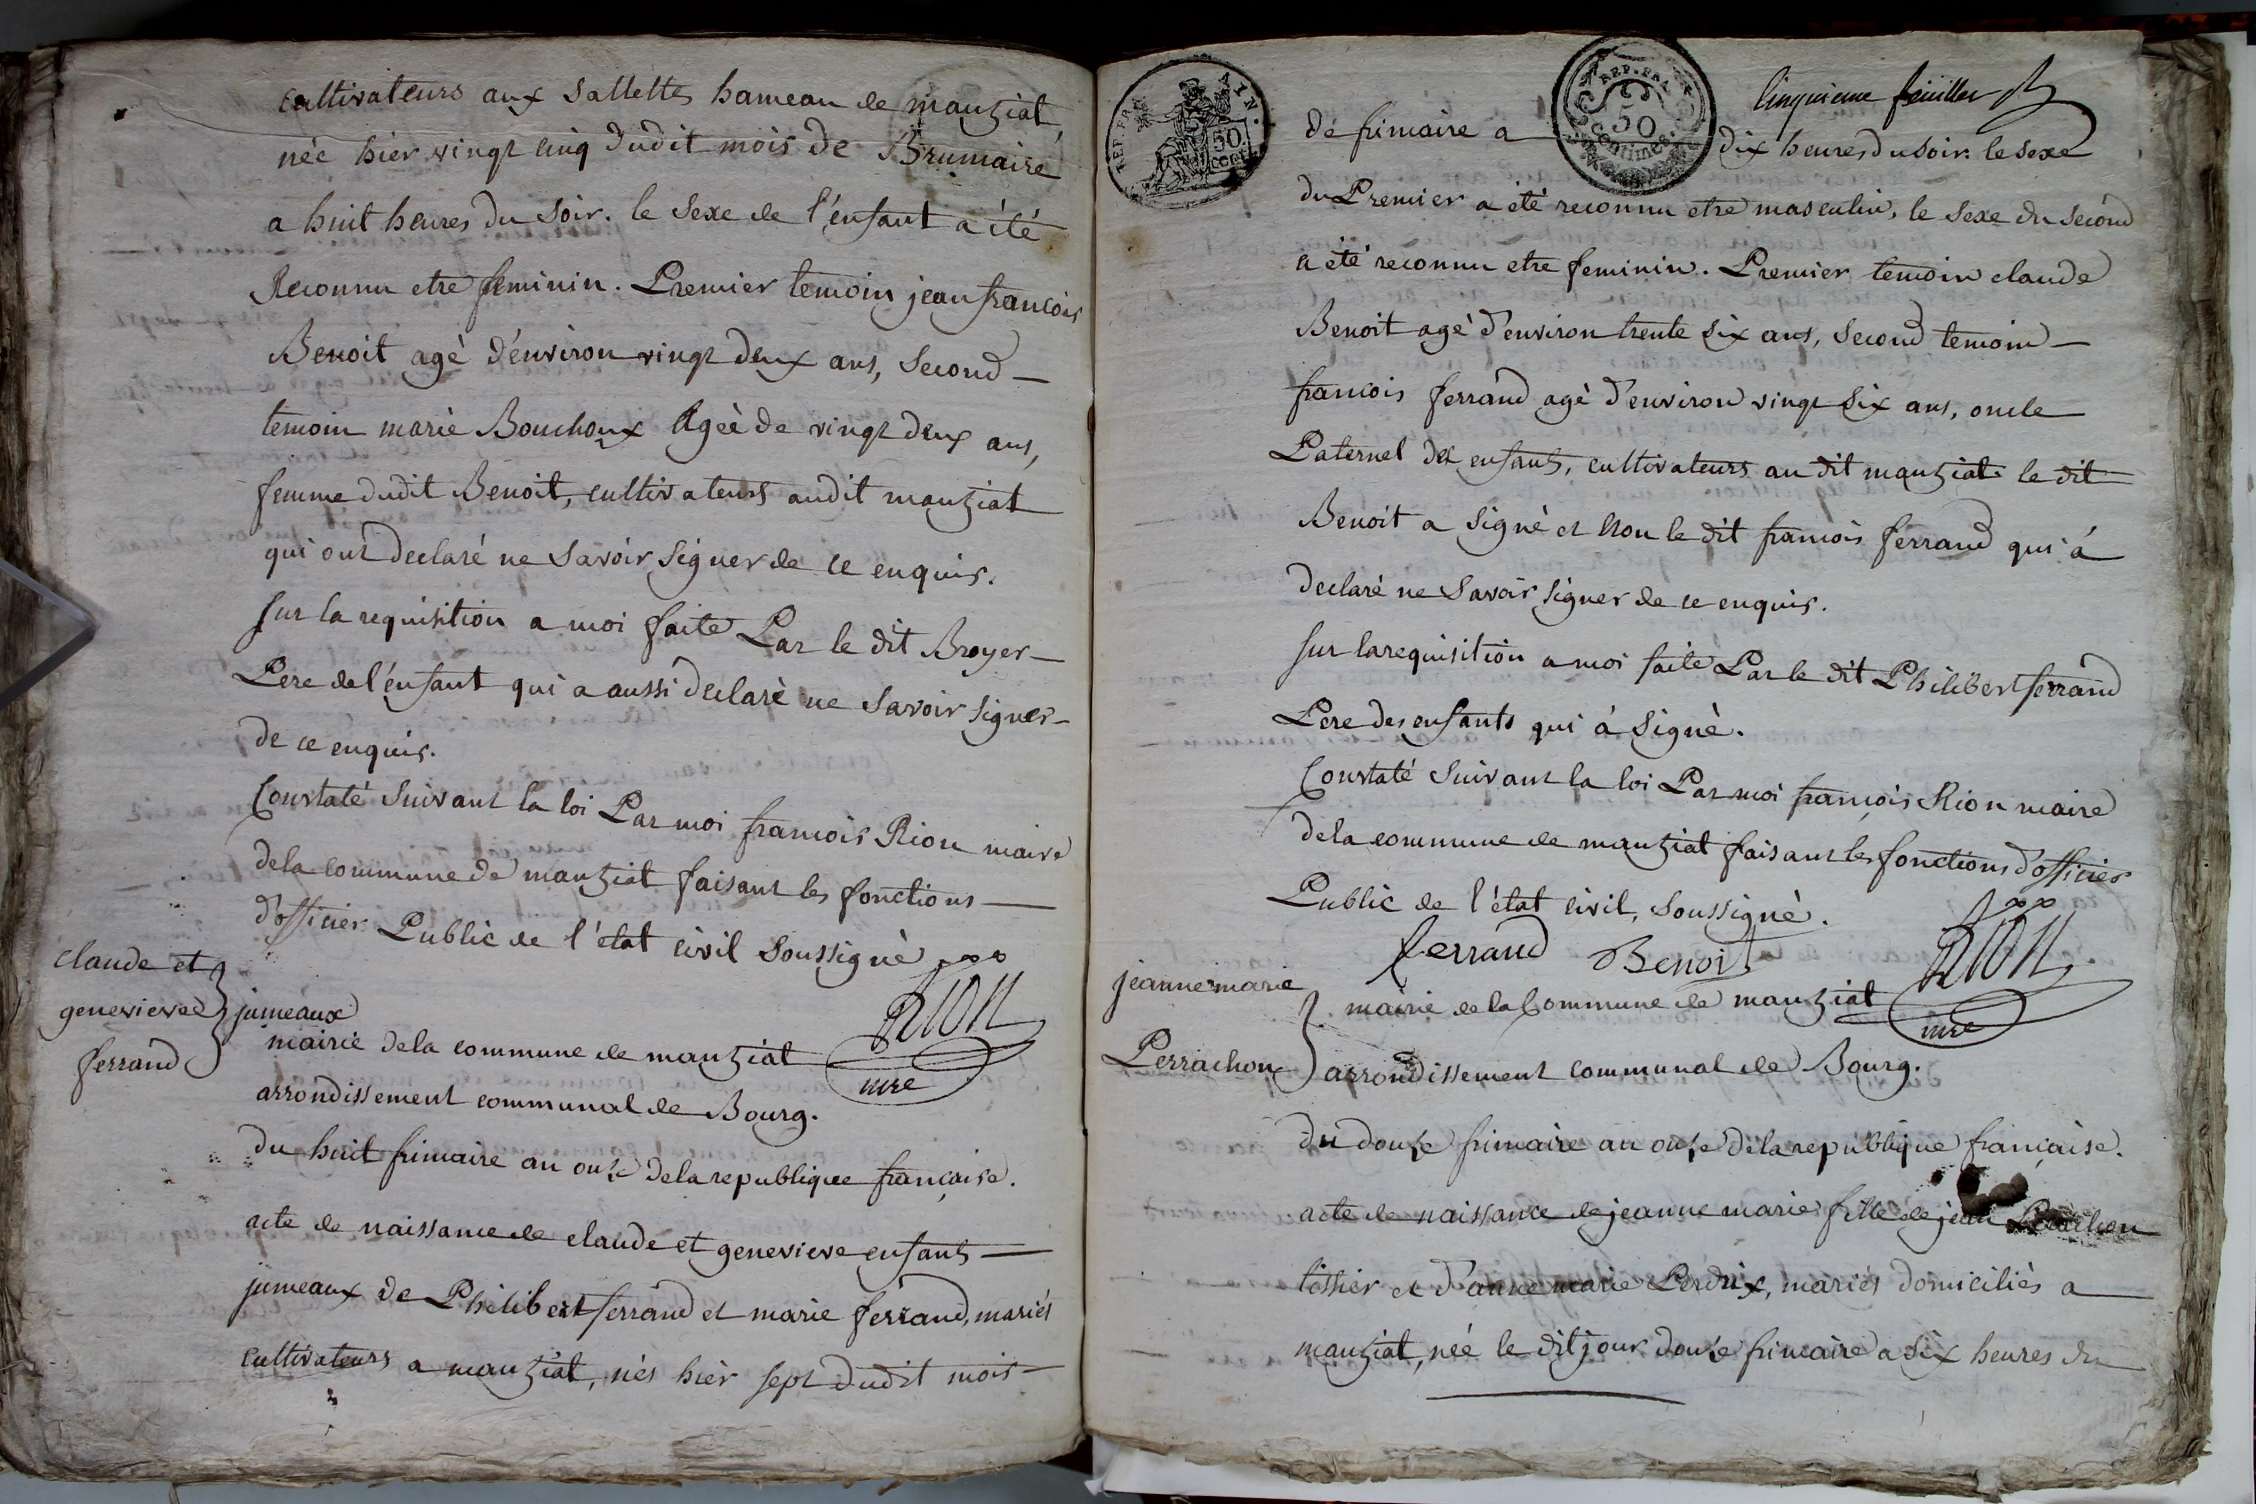 cultivateurs aux Sallettes hameau de manziat,
née hier vingt cinq dudit mois de Brumaire
a huit heures du Soir. le Sexe de l'énfant a été
Reconnu etre feminin. Premier temoin jean françois
Benoit agé d'énviron vingt deux ans, Second
temoin marie Bouchoux Agèe de vingt deux ans,
femme dudit Benoit, cultivateurs audit manziat
qui ont declaré ne Savoir Signer de ce enquis.
Sur la requisition a moi faite Par le dit Broyer
Pere de l'énfant qui a aussi declarè ne Savoir Signer
de ce enquis.
Constaté Suivant la loi Par moi françois Rion maire
dela commune de manziat faisant les fonctions
d'officier Public de l'état civil Soussignè
Rion
mre
claude et
genevieve
ferrand
jumeaux
mairie dela commune de manziat
arrondissement communal de Bourg.
du huit frimaire an onze dela republique française.
acte de naissance de claude et genevieve enfants
jumeaux de Philibert ferrand et marie ferrand, mariés
cultivateurs a manziat, nés hier sept dudit mois
REP. FRA.
AIN.
50
cent.
REP. FRA.
50
centimes.
Cinquieme feuillet
de frimaire a dix heures du Soir. le Sexe
du Premier a été reconnu etre masculin, le Sexe du Second
a été reconnu etre feminin. Premier temoin claude
Benoit agé d'environ trente Six ans, Second temoin
francois ferrand agé d'environ vingt Six ans, oncle
Paternel des enfants, cultivateurs au dit manziat le dit
Benoit a Signé et Non le dit francois ferrand qui á
declaré ne Savoir Signer de ce enquis.
Sur la requisition a moi faite Par le dit Philibert ferrand
Pere des enfants qui á Signè.
Constaté Suivant la loi Par moi françois Rion maire
dela commune de manziat faisant les fonctions d'officier
Public de l'état civil, Soussigné.
ferrand Benoit Rion
mre
jeanne marie
Perrachon
mairie de la Commune de manziat
arrondissement communal de Bourg.
du douze frimaire an onze dela republique française.
acte de naissance de jeanne marie fille de jean Perrachon
tissier et d'anne marie Perdrix, mariés domiciliés a
manziat, née le dit jour douze frimaire a Six heures du